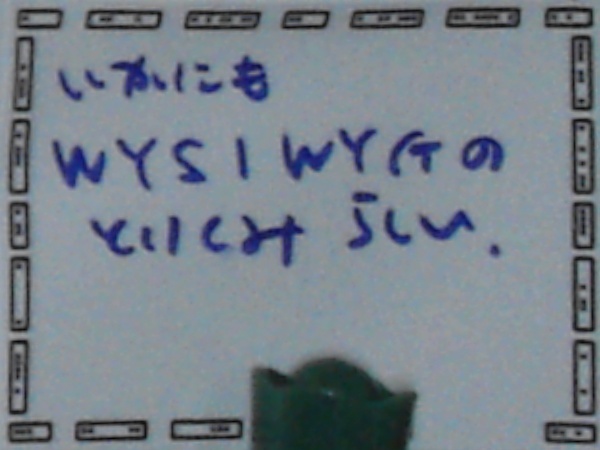 いかにも
WYSIWYGの
とりくみらしい.